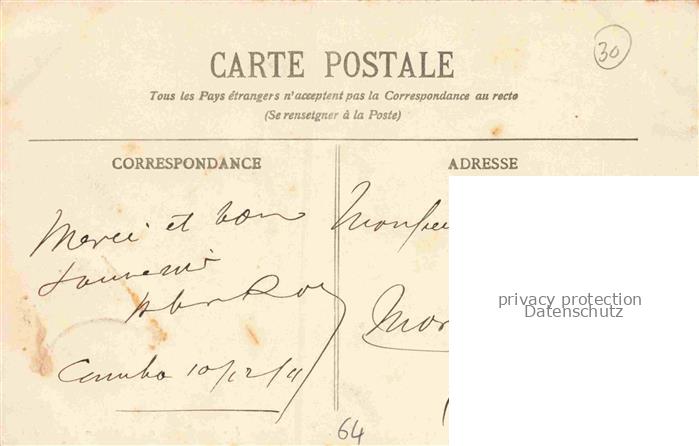 30
CARTE POSTALE
Tous les Pays étrangers n'acceptent pas la Correspondance au recto
(Se renseigner à la Poste)
CORRESPONDANCE
ADRESSE
Merci et bon
souvenir
Cambo 10/12/11
Monsieu
Mor
64
privacy protection
Datenschutz